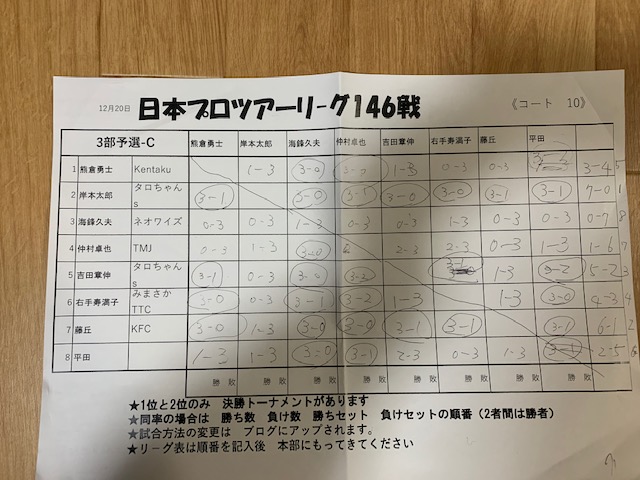 12月20日 日本プロツアーリーグ146戦 《コート 10》
3部予選-C 熊倉勇士 岸本太郎 海鋒久夫 仲村卓也 吉田章伸 右手寿満子 藤丘 平田
1 熊倉勇士 Kentaku 1-3 3-0 3-0 1-3 0-3 0-3 3-4 5
2 岸本太郎 タロちゃんs 3-1 3-0 3-1 3-0 3-1 3-1 7-0 1
3 海鋒久夫 ネオワイズ 0-3 0-3 1-3 0-3 0-3 1-3 0-3 0-3 0-7 8
4 仲村卓也 TMJ 0-3 1-3 3-0 2-3 2-3 0-3 1-3 1-6 7
5 吉田章伸 タロちゃんs 3-1 0-3 3-0 3-2 3-1 1-3 3-2 5-2 3
6 右手寿満子 みまさかTTC 3-0 0-3 3-1 3-2 1-3 1-3 3-0 4-3 4
7 藤丘 KFC 3-0 1-3 3-0 3-0 3-1 3-1 3-1 6-1 2
8 平田 1-3 1-3 3-0 3-1 2-3 0-3 1-3 3-1 2-5 6
勝 敗 勝 敗 勝 敗 勝 敗 勝 敗 勝 敗 勝 敗 勝 敗
★1位と2位のみ 決勝トーナメントがあります
★同率の場合は 勝ち数 負け数 勝ちセット 負けセットの順番（2者間は勝者）
★試合方法の変更は ブログにアップされます。
★リーグ表は順番を記入後 本部にもってきてください